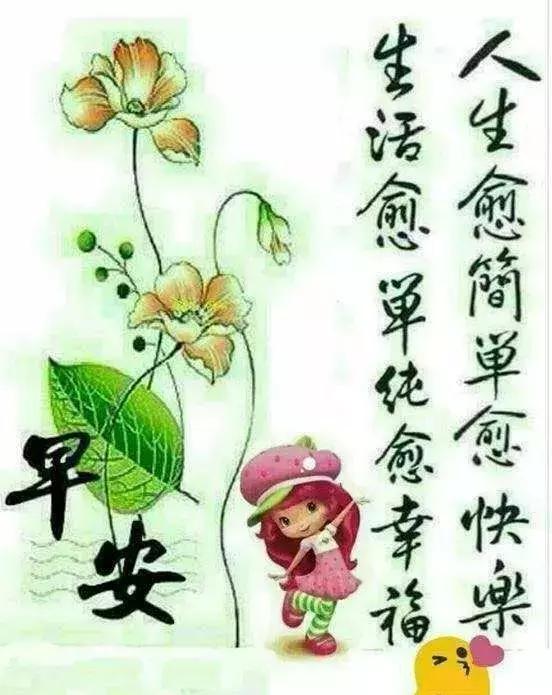 人生愈簡单愈快樂
生活愈單純愈幸福
早安